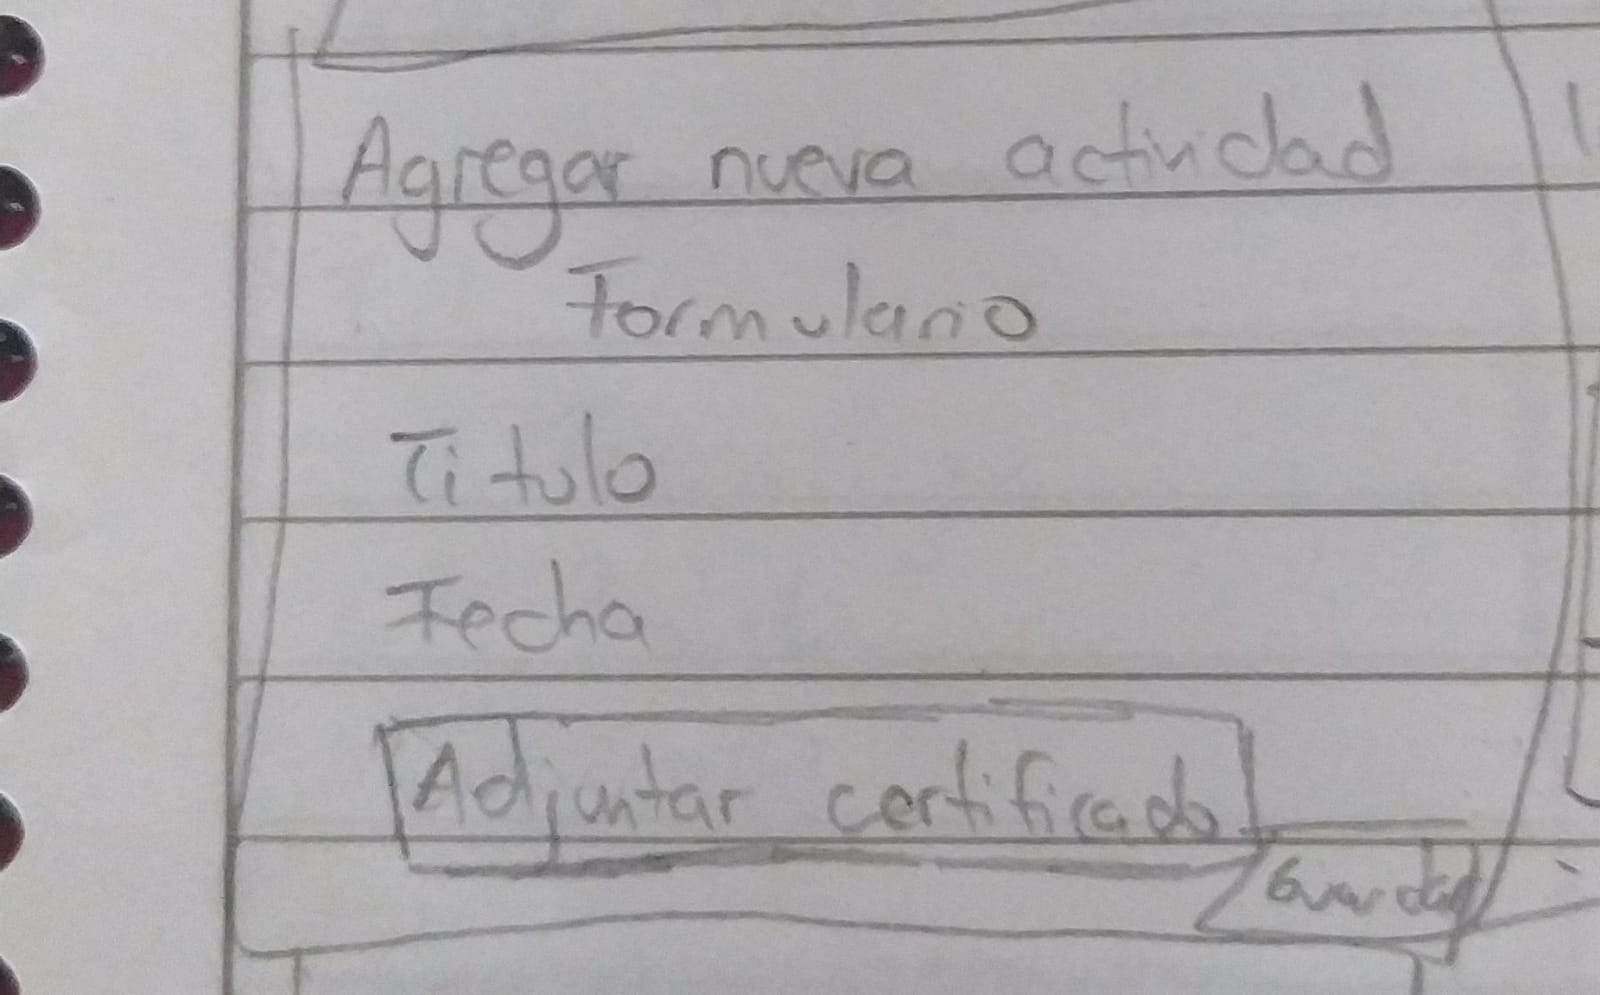 Agregar nueva actividad
Formulario
Titulo
Fecha
Adjuntar certificado
Guardar